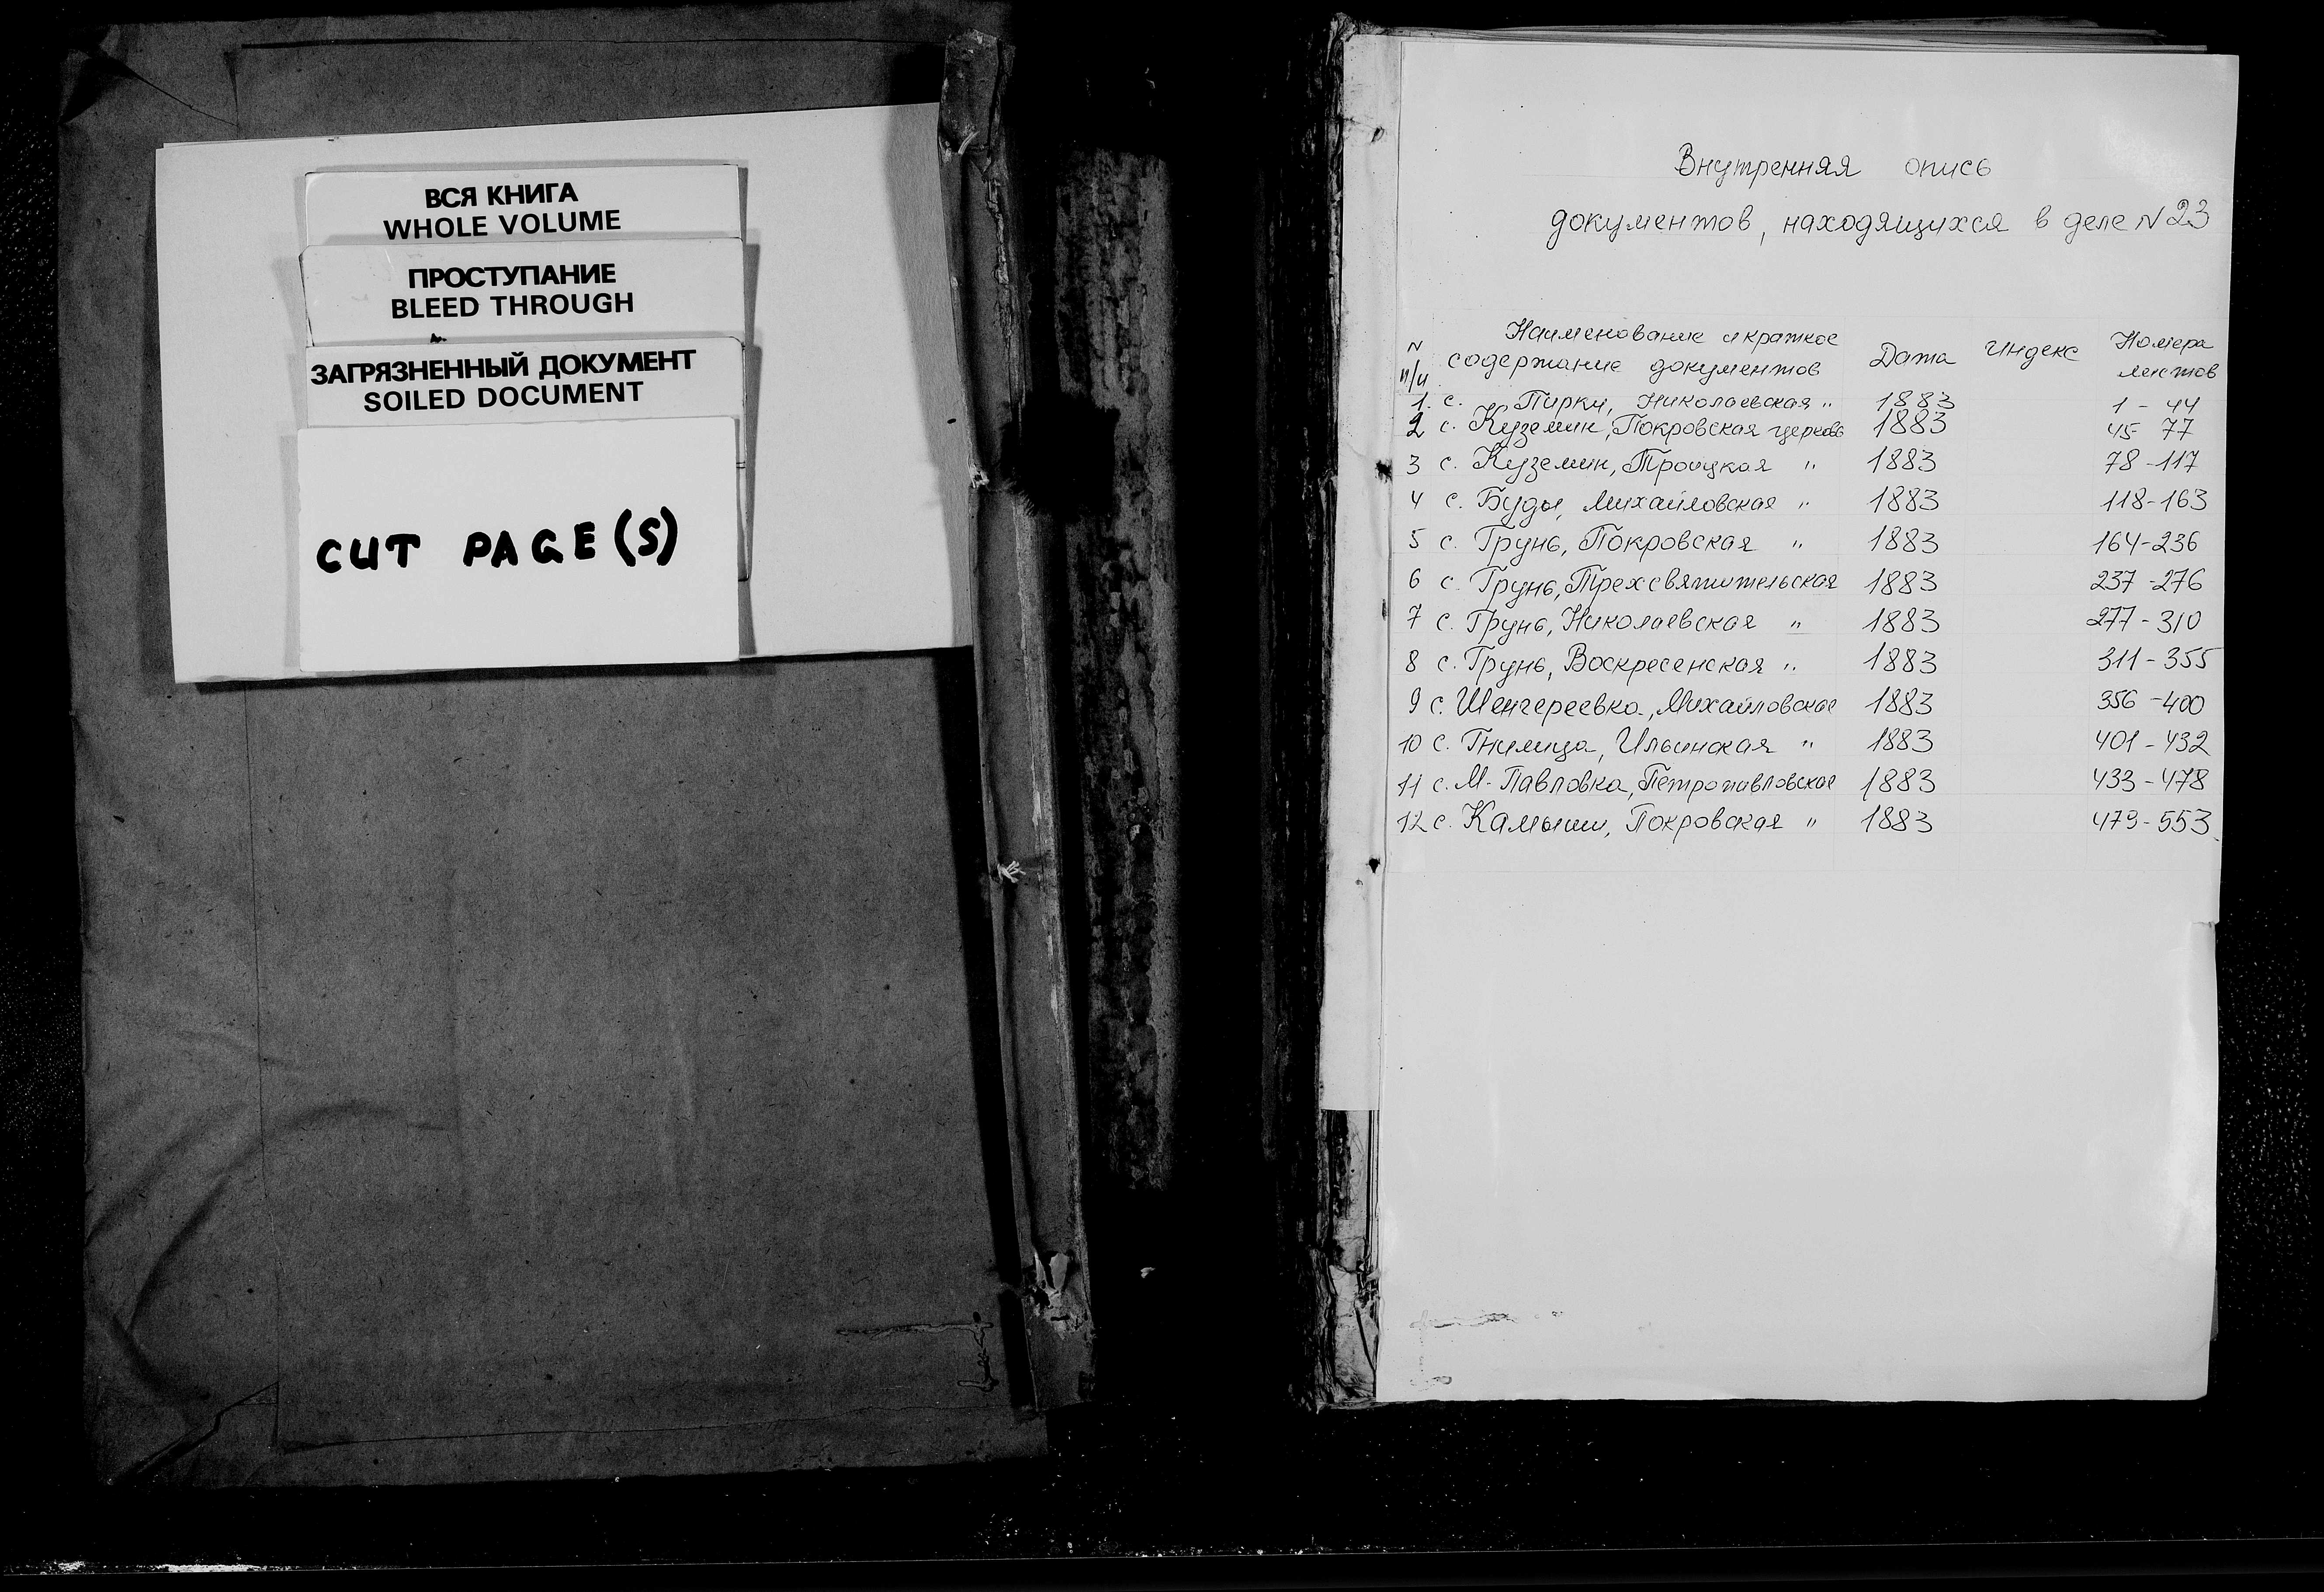 ВСЯ КНИГА
WHOLE VOLUME
ПРОСТУПАНИЕ
BLEED THROUGH
ЗАГРЯЗНЕННЫЙ ДОКУМЕНТ
SOILED DOCUMENT
CUT PAGE(S)
Внутренняя опись
документов, находящихся в деле N 23
N п/п Наименование и краткое содержание документов Дата Индекс Номера листов
1. с. Пирки, Николаевская " 1883 1 - 44
2 с. Куземин, Покровская церковь 1883 45- 77
3 с. Куземин, Троицкая " 1883 78 -117
4 с. Буды, Михайловская " 1883 118-163
5 с. Грунь, Покровская " 1883 164-236
6 с. Грунь, Трехсвятительская 1883 237 -276
7 с. Грунь, Николаевская " 1883 277 - 310
8 с. Грунь, Воскресенская " 1883 311 - 355
9 с. Шенгереевка, Михайловская 1883 356 -400
10 с. Гнилица, Ильинская " 1883 401 - 432
11 с. М-Павловка, Петропавловская 1883 433 - 478
12 с. Камыши, Покровская " 1883 479-553